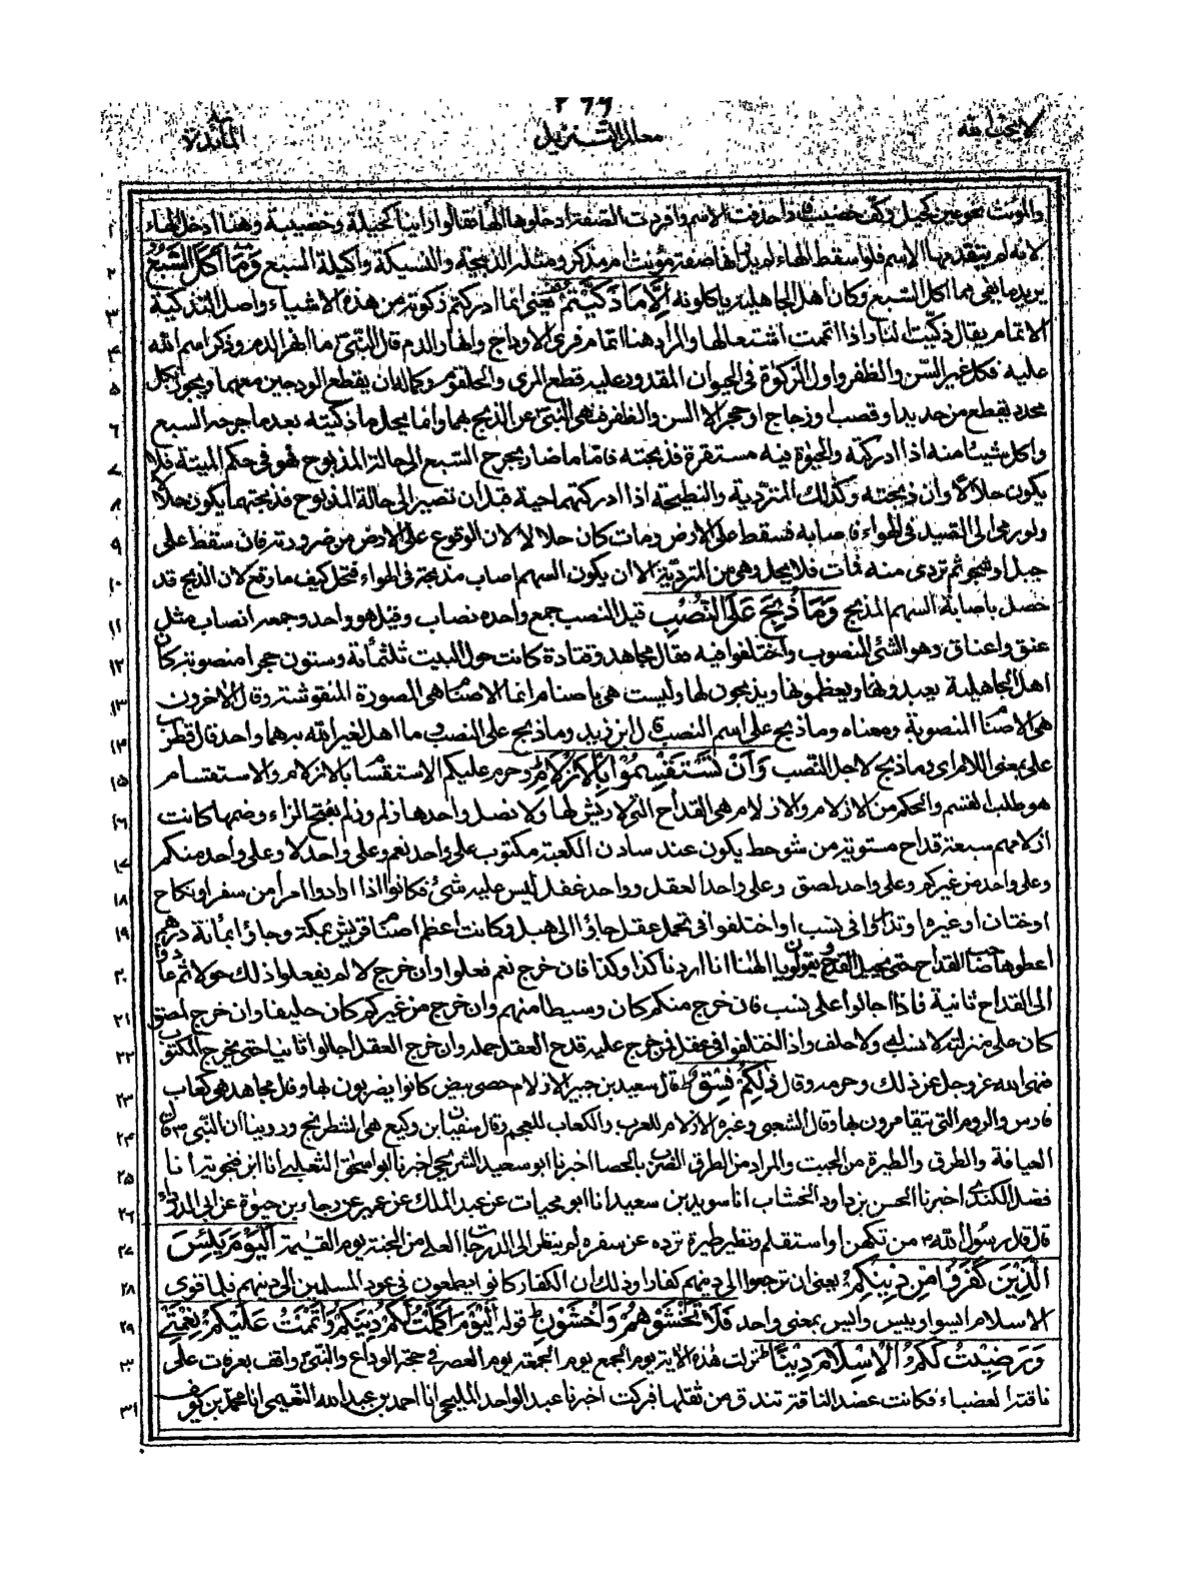 ٢٦٦
لا يحب الله معالم التنزيل المائدة
والمؤنث نحو عين كحيل وكف خضيب فاذا حذفت الاسم وافردت الصفة ادخلوا الهاء فقالوا راينا كحيلة وخضيبة وهنا ادخل الهاء
لانه لم يتقدمها الاسم فلو اسقط الهاء لم يدر انها صفة مؤنث ام مذكر ومثله الذبيحة والنسيكة واكيلة السبع وَمَا أَكَلَ السَّبُعُ
يريد ما بقى مما اكل السبع وكان اهل الجاهلية ياكلونه إِلَّا مَا ذَكَّيْتُمْ يعنى الا ما ادركتم ذكوته من هذه الاشياء واصل التذكية
الاتمام يقال ذكيت النار اذا اتممت اشتعالها والمراد هنا اتمام فرى الاوداج وانهار الدم قال النبى ما انهر الدم وذكر اسم الله
عليه فكل غير السن والظفر واول الذكوة فى الحيوان المقدور عليه قطع المرى والحلقوم وكماله ان يقطع الودجين معهما ويجوز بكل
محدد يقطع من حديد او قصب او زجاج او حجر الا السن والظفر فنهى النبى عن الذبح بهما وانما يحل ما ذكيته بعد ما جرحه السبع
واكل شيئا منه اذا ادركته والحيوة فيه مستقرة فذبحته فاما ما صار بجرح السبع الى حالة المذبوح فهو فى حكم الميتة فلا
يكون حلالا وان ذبحته وكذلك المتردية والنطيحة اذا ادركتهما حية قبل ان تصير الى حالة المذبوح فذبحتهما يكون حلالا
ولو رمى الى الصيد فى الهواء فاصابه فسقط على الارض ومات كان حلالا لان الوقوع على الارض من ضرورته فان سقط على
جبل او شجر ثم تردى منه فمات فلا يحل وهى من المتردية الا ان يكون السهم اصاب مذبحه فى الهواء فتحل كيف ما وقع لان الذبح قد
حصل باصابة السهم المذبح وَمَا ذُبِحَ عَلَى النُّصُبِ قيل النصب جمع واحده نصاب وقيل هو واحد وجمعه انصاب مثل
عنق واعناق وهو الشئ المنصوب واختلفوا فيه فقال مجاهد وقتادة كانت حول البيت ثلثمائة وستون حجرا منصوبة كان
اهل الجاهلية يعبدونها ويعظمونها ويذبحون لها وليست هى باصنام انما الاصنام هى الصورة المنقوشة وقال الاخرون
هى الاصنام المنصوبة ومعناه وما ذبح على اسم النصب قال ابن زيد وما ذبح على النصب وما اهل لغير الله به هما واحد قال قطرب
على بمعنى اللام اى وما ذبح لاجل النصب وَأَنْ تَسْتَقْسِمُوا بِالْأَزْلَامِ وحرم عليكم الاستقسام بالازلام والاستقسام
هو طلب القسم والحكم من الازلام والازلام هى القداح التى لا ريش لها ولا نصل واحدها زلم وزلم بفتح الزاء وضمها كانت
ازلامهم سبعة قداح مستوية من شوحط يكون عند سادن الكعبة مكتوب على واحد نعم وعلى واحد لا وعلى واحد منكم
وعلى واحد من غيركم وعلى واحد ملصق وعلى واحد العقل وواحد غفل ليس عليه شئ فكانوا اذا ارادوا امرا من سفر او نكاح
او ختان او غيره او تداروا فى نسب او اختلفوا فى تحمل عقل جاؤا الى هبل وكانت اعظم اصنام قريش بمكة وجاؤا بمائة درهم
اعطوها صاحب القداح حتى يجيل القداح ويقولون يا الهنا انا اردنا كذا وكذا فان خرج نعم فعلوا وان خرج لا لم يفعلوا ذلك حولا ثم عادوا
الى القداح ثانية فاذا اجالوا على نسب فان خرج منكم كان وسيطا منهم وان خرج من غيركم كان حليفا وان خرج ملصق
كان على منزلته لا نسب له ولا حلف واذا اختلفوا فى عقل فمن خرج عليه قدح العقل حمله وان خرج الغفل اجالوا ثانيا حتى يخرج المكتوب
فنهى الله عز وجل عن ذلك وحرمه وقال ذَٰلِكُمْ فِسْقٌ قال سعيد بن جبير الازلام حصى بيض كانوا يضربون بها وقال مجاهد هو كعاب
فارس والروم التى يتقامرون بها وقال الشعبى وغيره الازلام للعرب والكعاب للعجم وقال سفيان ابن وكيع هى الشطرنج وروينا ان النبى م قال
العيافة والطرق والطيرة من الجبت والمراد من الطرق الضرب بالحصا اخبرنا ابو سعيد الشريحى اخبرنا ابو اسحق الثعلبى انا ابن فنجويه انا
فضل الكندى اخبرنا الحسن بن داود الخشاب انا سويد بن سعيد انا ابو محيات عن عبد الملك عن عمير عن رجاء بن حيوة عن ابى الدرداء
قال قال رسول الله م من تكهن او استقسم او تطير طيرة ترده عن سفره لم ينظر الى الدرجات العلى من الجنة يوم القيمة الْيَوْمَ يَئِسَ
الَّذِينَ كَفَرُوا مِنْ دِينِكُمْ يعنى ان ترجعوا الى دينهم كفارا وذلك ان الكفار كانوا يطمعون فى عود المسلمين الى دينهم فلما قوى
الاسلام ايسوا ويئس وايس بمعنى واحد فَلَا تَخْشَوْهُمْ وَاخْشَوْنِ قوله الْيَوْمَ أَكْمَلْتُ لَكُمْ دِينَكُمْ وَأَتْمَمْتُ عَلَيْكُمْ نِعْمَتِي
وَرَضِيتُ لَكُمُ الْإِسْلَامَ دِينًا نزلت هذه الاية يوم الجمع يوم الجمعة يوم العصر فى حجة الوداع والنبى واقف بعرفات على
ناقته العضباء فكانت عضد الناقة تندق من ثقلها فبركت اخبرنا عبد الواحد المليحى انا احمد بن عبد الله النعيمى انا محمد بن يوسف